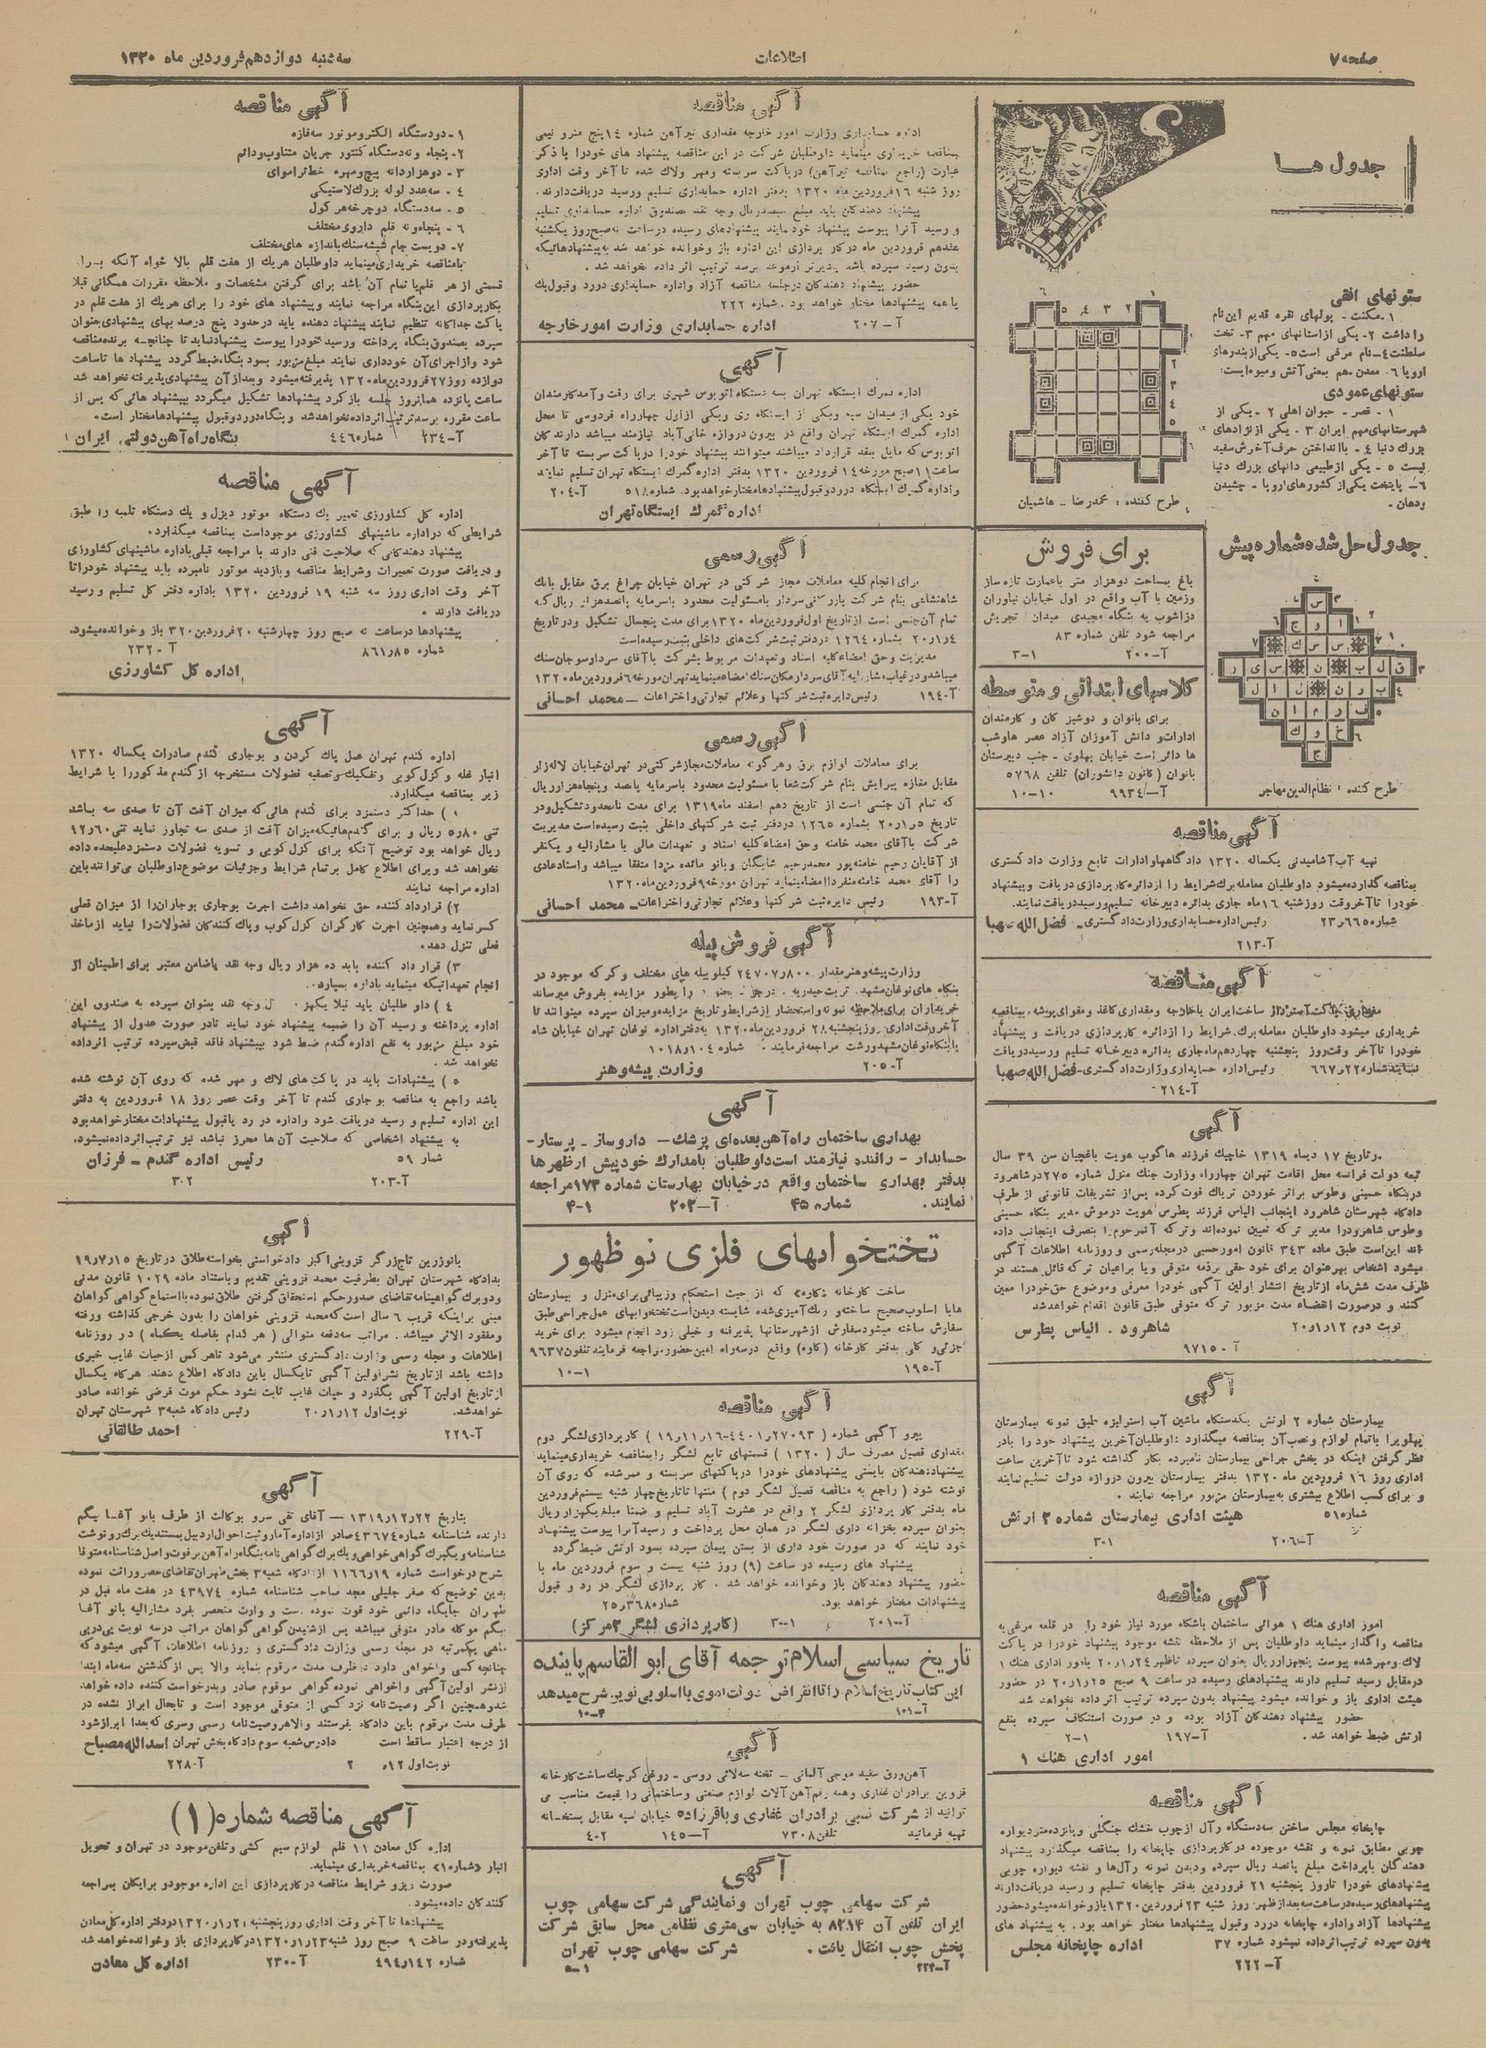 صفحه ۷
اطلاعات
سه شنبه دوازدهم فروردین ماه ۱۳۲۰
جدول ها
ستونهای افقی
۱- مکنت - پولهای نقره قدیم این نام
را داشت ۲- یکی از استانهای مهم ۳- تخت
سلطنت ۴- نام مرغی است ۵- یکی از بندرهای
اروپا ۶- معدن هم بمعنی آتش و میوه ایست:
ستونهای عمودی
۱- قصر - حیوان اهلی ۲ - یکی از
شهرستانهای مهم ایران ۳ - یکی از نژادهای
بزرگ دنیا ۴ - باانداختن حرف آخرش سفید
نیست ۵ - یکی از طبیعی دانهای بزرگ دنیا
۶- پایتخت یکی از کشورهای اروپا - چشیدن
ودهان -
طرح کننده : محمدرضا - هاشمیان
جدول حل شده شماره پیش
طرح کننده : نظام الدین مهاجر
برای فروش
باغ بمساحت دوهزار متر باعمارت تازه ساز
وزمین با آب واقع در اول خیابان نیاوران
دزاشوب به بنگاه مجیدی میدان تجریش
مراجعه شود تلفن شماره ۸۳
آ-۲۰۰ ۳-۱
کلاسهای ابتدائی و متوسطه
برای بانوان و دوشیز گان و کارمندان
ادارات و دانش آموزان آزاد عصر هاوشب
ها دائر است خیابان پهلوی - جنب دبیرستان
بانوان (کانون دانشوران) تلفن ۵۷۶۸
آ-۹۹۳۴ ۱۰-۱۰
آگهی مناقصه
تهیه آب آشامیدنی یکساله ۱۳۲۰ دادگاهها و ادارات تابع وزارت دادگستری
بمناقصه گذارده میشود داوطلبان معامله برگ شرایط را از دائره کارپردازی دریافت و پیشنهاد
خود را تا آخر وقت روز شنبه ۱۶ ماه جاری بدائره دبیرخانه تسلیم و رسید دریافت نمایند.
شماره ۲۳٫۶۶۵ رئیس اداره حسابداری وزارت دادگستری - فضل الله صهبا
آ-۲۱۳
آگهی مناقصه
خریداری میشود داوطلبان معامله برگ شرایط را از دائره کارپردازی دریافت و پیشنهاد
خود را تا آخر وقت روز پنجشنبه چهاردهم ماه جاری بدائره دبیرخانه تسلیم و رسید دریافت
نمایند شماره ۶۶۷٫۲۲ رئیس اداره حسابداری وزارت دادگستری - فضل الله صهبا
آ-۲۱۴
آگهی
در تاریخ ۱۷ دیماه ۱۳۱۹ خاچیک فرزند هاگوب هویت باغچیان سن ۳۹ سال
تبعه دولت فرانسه محل اقامت تهران چهارراه وزارت جنگ منزل شماره ۲۷۵ در شاهرود
در بنگاه حسینی وطوس براثر خوردن تریاک فوت کرده پس از تشریفات قانونی از طرف
دادگاه شهرستان شاهرود اینجانب الیاس فرزند پطرس هویت درموش مدیر بنگاه حسینی
وطوس شاهرود را مدیر ترکه تعیین نموده اند و ترکه آنمرحوم را بتصرف اینجانب داده
اند این است طبق ماده ۳۴۳ قانون امور حسبی در مجله رسمی و روزنامه اطلاعات آگهی
میشود اشخاص بهرعنوان برای خود حقی برذمه متوفی و یا براعیان ترکه قائل هستند در
ظرف مدت شش ماه از تاریخ انتشار اولین آگهی خود را معرفی و موضوع حق خود را معین
کنند و در صورت انقضاء مدت مزبور ترکه متوفی طبق قانون اقدام خواهد شد
نوبت دوم ۲۰٫۱٫۱۲ شاهرود . الیاس پطرس
آ-۹۷۱۵
آگهی
بیمارستان شماره ۲ ارتش یکدستگاه ماشین آب استرلیزه طبق نمونه بیمارستان
پهلوی را باتمام لوازم و نصب آن بمناقصه میگذارد داوطلبان آخرین پیشنهاد خود را بادر
نظر گرفتن اینکه در بخش جراحی بیمارستان نامبرده بکار گذاشته شود تا آخرین ساعت
اداری روز ۱۶ فروردین ماه ۱۳۲۰ بدفتر بیمارستان بیرون دروازه دولت تسلیم نمایند
و برای کسب اطلاع بیشتری به بیمارستان مزبور مراجعه نمایند .
شماره ۵۱ هیئت اداری بیمارستان شماره ۲ ارتش
آ-۲۰۶ ۳-۱
آگهی مناقصه
امور اداری هنگ ۱ هوائی ساختمان باشگاه مورد نیاز خود را در قلعه مرغی به
مناقصه واگذار مینماید داوطلبان پس از ملاحظه نقشه موجود پیشنهاد خود را در پاکت
لاک و مهر شده پیوست پنجهزار ریال بعنوان سپرده تاظهر ۲۰٫۱٫۲۴ بامور اداری هنگ ۱
در مقابل رسید تسلیم دارند پیشنهادهای رسیده در ساعت ۹ صبح ۲۰٫۱٫۲۵ در حضور
هیئت اداری باز و خوانده میشود پیشنهاد بدون سپرده ترتیب اثر داده نخواهد شد
حضور پیشنهاد دهندگان آزاد بوده و در صورت استنکاف سپرده بنفع
ارتش ضبط خواهد شد . آ-۱۹۷ ۲-۱
امور اداری هنگ ۱
آگهی مناقصه
چاپخانه مجلس ساختن سه دستگاه رآل از چوب خشک جنگلی و پانزده متر دیواره
چوبی مطابق نمونه و نقشه موجوده در کارپردازی چاپخانه را بمناقصه میگذارد پیشنهاد
دهندگان باپرداخت مبلغ پانصد ریال سپرده و دیدن نمونه رآلها و نقشه دیواره چوبی
پیشنهادهای خود را تا روز پنجشنبه ۲۱ فروردین بدفتر چاپخانه تسلیم و رسید دریافت دارند
پیشنهادهای رسیده در ساعت سه بعد از ظهر روز شنبه ۲۳ فروردین ۱۳۲۰ باز و خوانده میشود حضور
پیشنهادها آزاد و اداره چاپخانه در رد و قبول پیشنهادها مختار خواهد بود . به پیشنهاد های
بدون سپرده ترتیب اثر داده نمیشود شماره ۳۷ اداره چاپخانه مجلس
آ-۲۲۲
آگهی مناقصه
اداره حسابداری وزارت امور خارجه مقداری تیرآهن شماره ۱۴ پنج مترو نیمی
بمناقصه خریداری مینماید داوطلبان شرکت در این مناقصه پیشنهاد های خود را با ذکر
عبارت (راجع بمناقصه تیرآهن) در پاکت سربسته و مهر ولاک شده تا آخر وقت اداری
روز شنبه ۱۶ فروردین ماه ۱۳۲۰ بدفتر اداره حسابداری تسلیم و رسید دریافت دارند .
پیشنهاد دهندگان باید مبلغ سیصد ریال وجه نقد بصندوق اداره حسابداری تسلیم
و رسید آنرا پیوست پیشنهاد خود نمایند پیشنهادهای رسیده در ساعت نه صبح روز یکشنبه
هفدهم فروردین ماه در کار پردازی این اداره باز و خوانده خواهد شد به پیشنهادهائیکه
بدون رسید سپرده باشد یا دیرتر از موعد برسد ترتیب اثر داده نخواهد شد .
حضور پیشنهاد دهندگان در جلسه مناقصه آزاد و اداره حسابداری در رد و قبول یک
یا همه پیشنهادها مختار خواهد بود . شماره ۲۲۲
آ-۲۰۷ اداره حسابداری وزارت امور خارجه
آگهی
اداره گمرک ایستگاه تهران بسه دستگاه اتوبوس شهری برای رفت و آمد کارمندان
خود یکی از میدان سپه و یکی از ایستگاه ری و یکی از اول چهارراه فردوسی تا محل
اداره گمرک ایستگاه تهران واقع در بیرون دروازه خانی آباد نیازمند میباشد دارندگان
اتوبوس که مایل بعقد قرارداد میباشند میتوانند پیشنهاد خود را در پاکت سربسته تا آخر
ساعت ۱۱ صبح مورخه ۱۴ فروردین ۱۳۲۰ بدفتر اداره گمرک ایستگاه تهران تسلیم نمایند
و اداره گمرک ایستگاه در رد و قبول پیشنهادها مختار خواهد بود. شماره ۵۱۸ آ-۲۰۴
اداره گمرک ایستگاه تهران
آگهی رسمی
برای انجام کلیه معاملات مجاز شرکتی در تهران خیابان چراغ برق مقابل بانک
شاهنشاهی بنام شرکت بازرگانی سردار بامسئولیت محدود باسرمایه پانصدهزار ریال که
تمام آن جنسی است از تاریخ اول فروردین ماه ۱۳۲۰ برای مدت پنجسال تشکیل و در تاریخ
۲۰٫۱٫۴ بشماره ۱۲۶۴ در دفتر ثبت شرکت های داخلی بثبت رسیده است
مدیریت و حق امضاء کلیه اسناد و تعهدات مربوط بشرکت باآقای سردار سوجان سنگ
میباشد و در غیاب مشارالیه آقای سردار مکان سنگ امضاء مینماید تهران مورخه ۶ فروردین ماه ۱۳۲۰
آ-۱۹۴ رئیس دایره ثبت شرکتها و علائم تجارتی و اختراعات - محمد احسانی
آگهی رسمی
برای معاملات لوازم برق و هرگونه معاملات مجاز شرکتی در تهران خیابان لاله زار
مقابل مغازه پیرایش بنام شرکت شعا با مسئولیت محدود باسرمایه یکصد و پنجاه هزار ریال
که تمام آن جنسی است از تاریخ دهم اسفند ماه ۱۳۱۹ برای مدت نامحدود تشکیل و در
تاریخ ۲۰٫۱٫۵ بشماره ۱۲۶۵ در دفتر ثبت شرکتهای داخلی بثبت رسیده است مدیریت
شرکت باآقای محمد خامنه وحق امضاء کلیه اسناد و تعهدات مالی با مشارالیه و یکنفر
از آقایان رحیم خامنه پور محمدرحیم شایگان و بانو مائده مزدا متفقا میباشد و اسناد عادی
را آقای محمد خامنه منفردا امضا مینماید تهران مورخه ۹ فروردین ماه ۱۳۲۰
آ-۱۹۳ رئیس دایره ثبت شرکتها و علائم تجارتی و اختراعات - محمد احسانی
آگهی فروش پیله
وزارت پیشه و هنر مقدار ۲۴۷۰۷٫۸۰۰ کیلو پیله های مختلف و کرکه موجود در
خریداران برای ملاحظه نمونه و استحضار از شرایط و تاریخ مزایده و میزان سپرده میتوانند تا
آخر وقت اداری روز پنجشنبه ۲۸ فروردین ماه ۱۳۲۰ به دفتر اداره نوغان تهران خیابان شاه
یا بنگاه نوغان مشهد و رشت مراجعه فرمایند . شماره ۱۰۱۸٫۱۰۴
آ-۲۰۵ وزارت پیشه و هنر
آگهی
بهداری ساختمان راه آهن بعده ای پزشک - داروساز - پرستار -
حسابدار - راننده نیازمند است داوطلبان بامدارک خود پیش از ظهرها
بدفتر بهداری ساختمان واقع در خیابان بهارستان شماره ۱۷۳ مراجعه
نمایند . شماره ۴۵ آ-۲۰۲ ۴-۱
تختخوابهای فلزی نو ظهور
ساخت کارخانه (کاوه) که از حیث استحکام و زیبائی برای منزل و بیمارستان
هابا اسلوب صحیح ساخته و رنگ آمیزی شده شایسته دیدن است تختخوابهای عمل جراحی طبق
سفارش ساخته میشود سفارش از شهرستانها پذیرفته و خیلی زود انجام میشود برای خرید
جزئی و کلی بدفتر کارخانه (کاوه) واقع در سه راه امین حضور مراجعه فرمایند تلفون ۹۶۳۷
آ-۱۹۵ ۱۰-۱
آگهی مناقصه
پیرو آگهی شماره ( ۲۷۰۹۳٫۴۴۰۱-۱۹٫۱۱٫۱۶ ) کارپردازی لشگر دوم
مقداری قصیل مصرف سال (۱۳۲۰) قسمتهای تابع لشگر را بمناقصه خریداری مینماید
پیشنهاد دهندگان بایستی پیشنهادهای خود را در پاکتهای سربسته و مهر شده که روی آن
نوشته شود ( راجع به مناقصه قصیل لشگر دوم ) منتها تا تاریخ چهار شنبه بیستم فروردین
ماه بدفتر کار پردازی لشگر ۲ واقع در عشرت آباد تسلیم و ضمنا مبلغ یکهزار ریال
بعنوان سپرده بخزانه داری لشگر در همان محل پرداخت و رسید آنرا پیوست پیشنهاد
خود نمایند که در صورت خود داری از بستن پیمان سپرده بسود ارتش ضبط گردد
پیشنهاد های رسیده در ساعت (۹) روز شنبه بیست و سوم فروردین ماه با
حضور پیشنهاد دهندگان باز و خوانده خواهد شد . کار پردازی لشگر در رد و قبول
پیشنهادات مختار خواهد بود. شماره ۲۵٫۳۶۸
آ-۲۰۱ ۳-۱ (کارپردازی لشگر ۲ مرکز)
تاریخ سیاسی اسلام ترجمه آقای ابوالقاسم پاینده
این کتاب تاریخ اسلام را تا انقراض دولت اموی با اسلوبی نوین شرح میدهد
آ-۱۰۱ ۱۰-۴
آگهی
آهن ورق سفید موجی آلمانی - تخته سه لائی روسی - روغن کرچک ساخت کارخانه
قزوین برادران غفاری و همه رقم آهن آلات لوازم صنعتی و ساختمانی را بقیمت مناسب می
توانید از شرکت نسبی برادران غفاری و باقرزاده خیابان سپه مقابل پستخانه
تهیه فرمائید تلفن ۷۳۰۸ آ-۱۴۵ ۴-۲
آگهی
شرکت سهامی چوب تهران و نمایندگی شرکت سهامی چوب
ایران تلفن آن ۸۲۱۴ به خیابان سی متری نظامی محل سابق شرکت
پخش چوب انتقال یافت . شرکت سهامی چوب تهران
آ-۲۲۴
آگهی مناقصه
۱- دو دستگاه الکتروموتور سه فازه
۲- پنجاه و نه دستگاه کنتور جریان متناوب و دائم
۳ - دو هزار دانه پیچ و مهره خط تراموای
۴ - سه عدد لوله بزرگ لاستیکی
۵ - سه دستگاه دو چرخه هرکول
۶ - پنجاه و نه قلم داروی مختلف
۷ - دویست جام شیشه سنگ باندازه های مختلف
بامناقصه خریداری مینماید داوطلبان هریک از هفت قلم بالا خواه آنکه برای
قسمتی از هر قلم یا تمام آن باشد برای گرفتن مشخصات و ملاحظه مقررات همگانی قبلا
بکارپردازی این بنگاه مراجعه نمایند و پیشنهاد های خود را برای هریک از هفت قلم در
پاکت جداگانه تنظیم نمایند پیشنهاد دهنده باید در حدود پنج درصد بهای پیشنهادی بعنوان
سپرده بصندوق بنگاه پرداخته و رسید خود را پیوست پیشنهاد نماید تا چنانچه برنده مناقصه
شود و از اجرای آن خودداری نمایند مبلغ مزبور بسود بنگاه ضبط گردد پیشنهاد ها تا ساعت
دوازده روز ۲۷ فروردین ماه ۱۳۲۰ پذیرفته میشود و بعد از آن پیشنهادی پذیرفته نخواهد شد
ساعت پانزده همانروز جلسه باز کرد پیشنهادها تشکیل میگردد بپیشنهاد هائی که پس از
ساعت مقرره برسد ترتیب اثر داده نخواهد شد و بنگاه در رد و قبول پیشنهادها مختار است .
شماره ۴۴۶ بنگاه راه آهن دولتی ایران
آگهی مناقصه
اداره کل کشاورزی تعمیر یک دستگاه موتور دیزل و یک دستگاه تلمبه را طبق
شرایطی که در اداره ماشینهای کشاورزی موجود است بمناقصه میگذارد.
پیشنهاد دهندگانی که صلاحیت فنی دارند با مراجعه قبلی باداره ماشینهای کشاورزی
و دریافت صورت تعمیرات و شرایط مناقصه و بازدید موتور نامبرده باید پیشنهاد خود را تا
آخر وقت اداری روز سه شنبه ۱۹ فروردین ۱۳۲۰ باداره دفتر کل تسلیم و رسید
دریافت دارند .
پیشنهادها در ساعت نه صبح روز چهارشنبه ۲۰ فروردین ۳۲۰ باز و خوانده میشود.
شماره ۸۶۱٫۸۵ آ-۲۳۲
اداره کل کشاورزی
آگهی
اداره گندم تهران عمل پاک کردن و بوجاری گندم صادرات یکساله ۱۳۲۰
انبار غله و کزل کوبی و تفکیک و تصفیه فضولات مستخرجه از گندم مذکور را با شرایط
زیر بمناقصه میگذارد.
۱ ) حداکثر دستمزد برای گندم هائی که میزان آفت آن تا صدی سه باشد
تنی ۵٫۸۰ ریال و برای گندم هائیکه میزان آفت از صدی سه تجاوز نماید تنی ۱۲٫۶۰
ریال خواهد بود توضیح آنکه برای کزل کوبی و تسویه فضولات دستمزد علیحده داده
نخواهد شد و برای اطلاع کامل بر تمام شرایط و جزئیات موضوع داوطلبان می توانند باین
اداره مراجعه نمایند
۲) قرارداد کننده حق نخواهد داشت اجرت بوجاری بوجاران را از میزان فعلی
کسر نماید و همچنین اجرت کارگران کزل کوب و پاک کنندگان فضولات را نباید از مأخذ
فعلی تنزل دهد.
۳) قرار داد کننده باید ده هزار ریال وجه نقد یا ضامن معتبر برای اطمینان از
انجام تعهداتیکه مینماید باداره بسپارد.
اداره پرداخته و رسید آن را ضمیمه پیشنهاد خود نماید تا در صورت عدول از پیشنهاد
خود مبلغ مزبور به نفع اداره گندم ضبط شود بپیشنهاد فاقد قبض سپرده ترتیب اثر داده
نخواهد شد .
۵ ) پیشنهادات باید در پاکت های لاک و مهر شده که روی آن نوشته شده
باشد راجع به مناقصه بوجاری گندم تا آخر وقت عصر روز ۱۸ فروردین به دفتر
این اداره تسلیم و رسید دریافت شود و اداره در رد یا قبول پیشنهادات مختار خواهد بود
به پیشنهاد اشخاصی که صلاحیت آن ها محرز نباشد نیز ترتیب اثر داده نمیشود.
شمار ۵۹ رئیس اداره گندم - فرزان
آ-۲۰۳ ۳-۲
آگهی
بانو زرین تاج زرگر قزوینی اکبر دادخواستی بخواسته طلاق در تاریخ ۱۹٫۷٫۱۵
بدادگاه شهرستان تهران بطرفیت محمد قزوینی تقدیم و باستناد ماده ۱۰۲۹ قانون مدنی
و دو برگ گواهینامه تقاضای صدور حکم استحقاق گرفتن طلاق نموده با استماع گواهی گواهان
مبنی براینکه قریب ۶ سال است که محمد قزوینی خواهان را بدون خرجی گذاشته و رفته
و مفقود الاثر میباشد . مراتب سه دفعه متوالی ( هر کدام بفاصله یکماه ) در روزنامه
اطلاعات و مجله رسمی وزارت دادگستری منتشر می شود تا هر کس از حیات غایب خبری
داشته باشد از تاریخ نشر اولین آگهی تا یکسال باین دادگاه اطلاع دهند. هرگاه یکسال
از تاریخ اولین آگهی بگذرد و حیات غایب ثابت نشود حکم موت فرضی خوانده صادر
خواهد شد. نوبت اول ۲۰٫۱٫۱۲ رئیس دادگاه شعبه ۳ شهرستان تهران
آ-۲۲۹ احمد طالقانی
آگهی
بتاریخ ۱۳۱۹٫۱۲٫۲۲ - آقای تقی سرو بوکالت از طرف بانو آغا بیگم
دارنده شناسنامه شماره ۴۳۶۷۴ صادر از اداره آمار و ثبت احوال اردبیل بمستند یک برگ رونوشت
شناسنامه و یکبرگ گواهی خواهی و یک برگ گواهی نامه بنگاه راه آهن بر فوت و اصل شناسنامه متوفا
بشرح درخواست شماره ۱۱۶۶٫۱۹ از دادگاه شعبه ۳ بخش طهران تقاضای حصر وراثت نموده
بدین توضیح که صفر جلیلی مجد صاحب شناسنامه شماره ۴۳۹۷۴ در هفت ماه قبل در
طهران جایگاه دائمی خود فوت نموده است و وارث منحصر بفرد مشارالیه بانو آغا
بیگم موکله مادر متوفی میباشد پس از شنیدن گواهی گواهان مراتب در سه نوبت پی در پی
ماهی یکمرتبه در مجله رسمی وزارت دادگستری و روزنامه اطلاعات آگهی میشود که
چنانچه کسی واخواهی دارد در ظرف مدت مرقوم بنماید والا پس از گذشتن سه ماه ابتدا
از نشر اولین آگهی واخواهی نموده گواهی موقوم صادر و بدرخواست کننده داده خواهد
شد و همچنین اگر وصیت نامه نزد کسی از متوفی موجود است و تا بحال ابراز نشده در
ظرف مدت مرقوم باین دادگاه بفرستند والا هر وصیت نامه رسمی و سری که بعدا ابراز شود
از درجه اعتبار ساقط است دادرس شعبه سوم دادگاه بخش تهران اسدالله مصباح
آ-۲۲۸
آگهی مناقصه شماره (۱)
اداره کل معادن ۱۱ قلم لوازم سیم کشی و تلفن موجود در تهران و تحویل
انبار (شماره ۱) بمناقصه خریداری مینماید.
صورت ریز و شرایط مناقصه در کارپردازی این اداره موجود و برایگان بمراجعه
کنندگان داده میشود.
پیشنهادها تا آخر وقت اداری روز پنجشنبه ۱۳۲۰٫۱٫۲۱ در دفتر اداره کل معادن
پذیرفته و در ساعت ۹ صبح روز شنبه ۱۳۲۰٫۱٫۲۳ در کارپردازی باز و خوانده خواهد شد
شماره ۴۹۴٫۱۴۲ آ-۲۳۰ اداره کل معادن